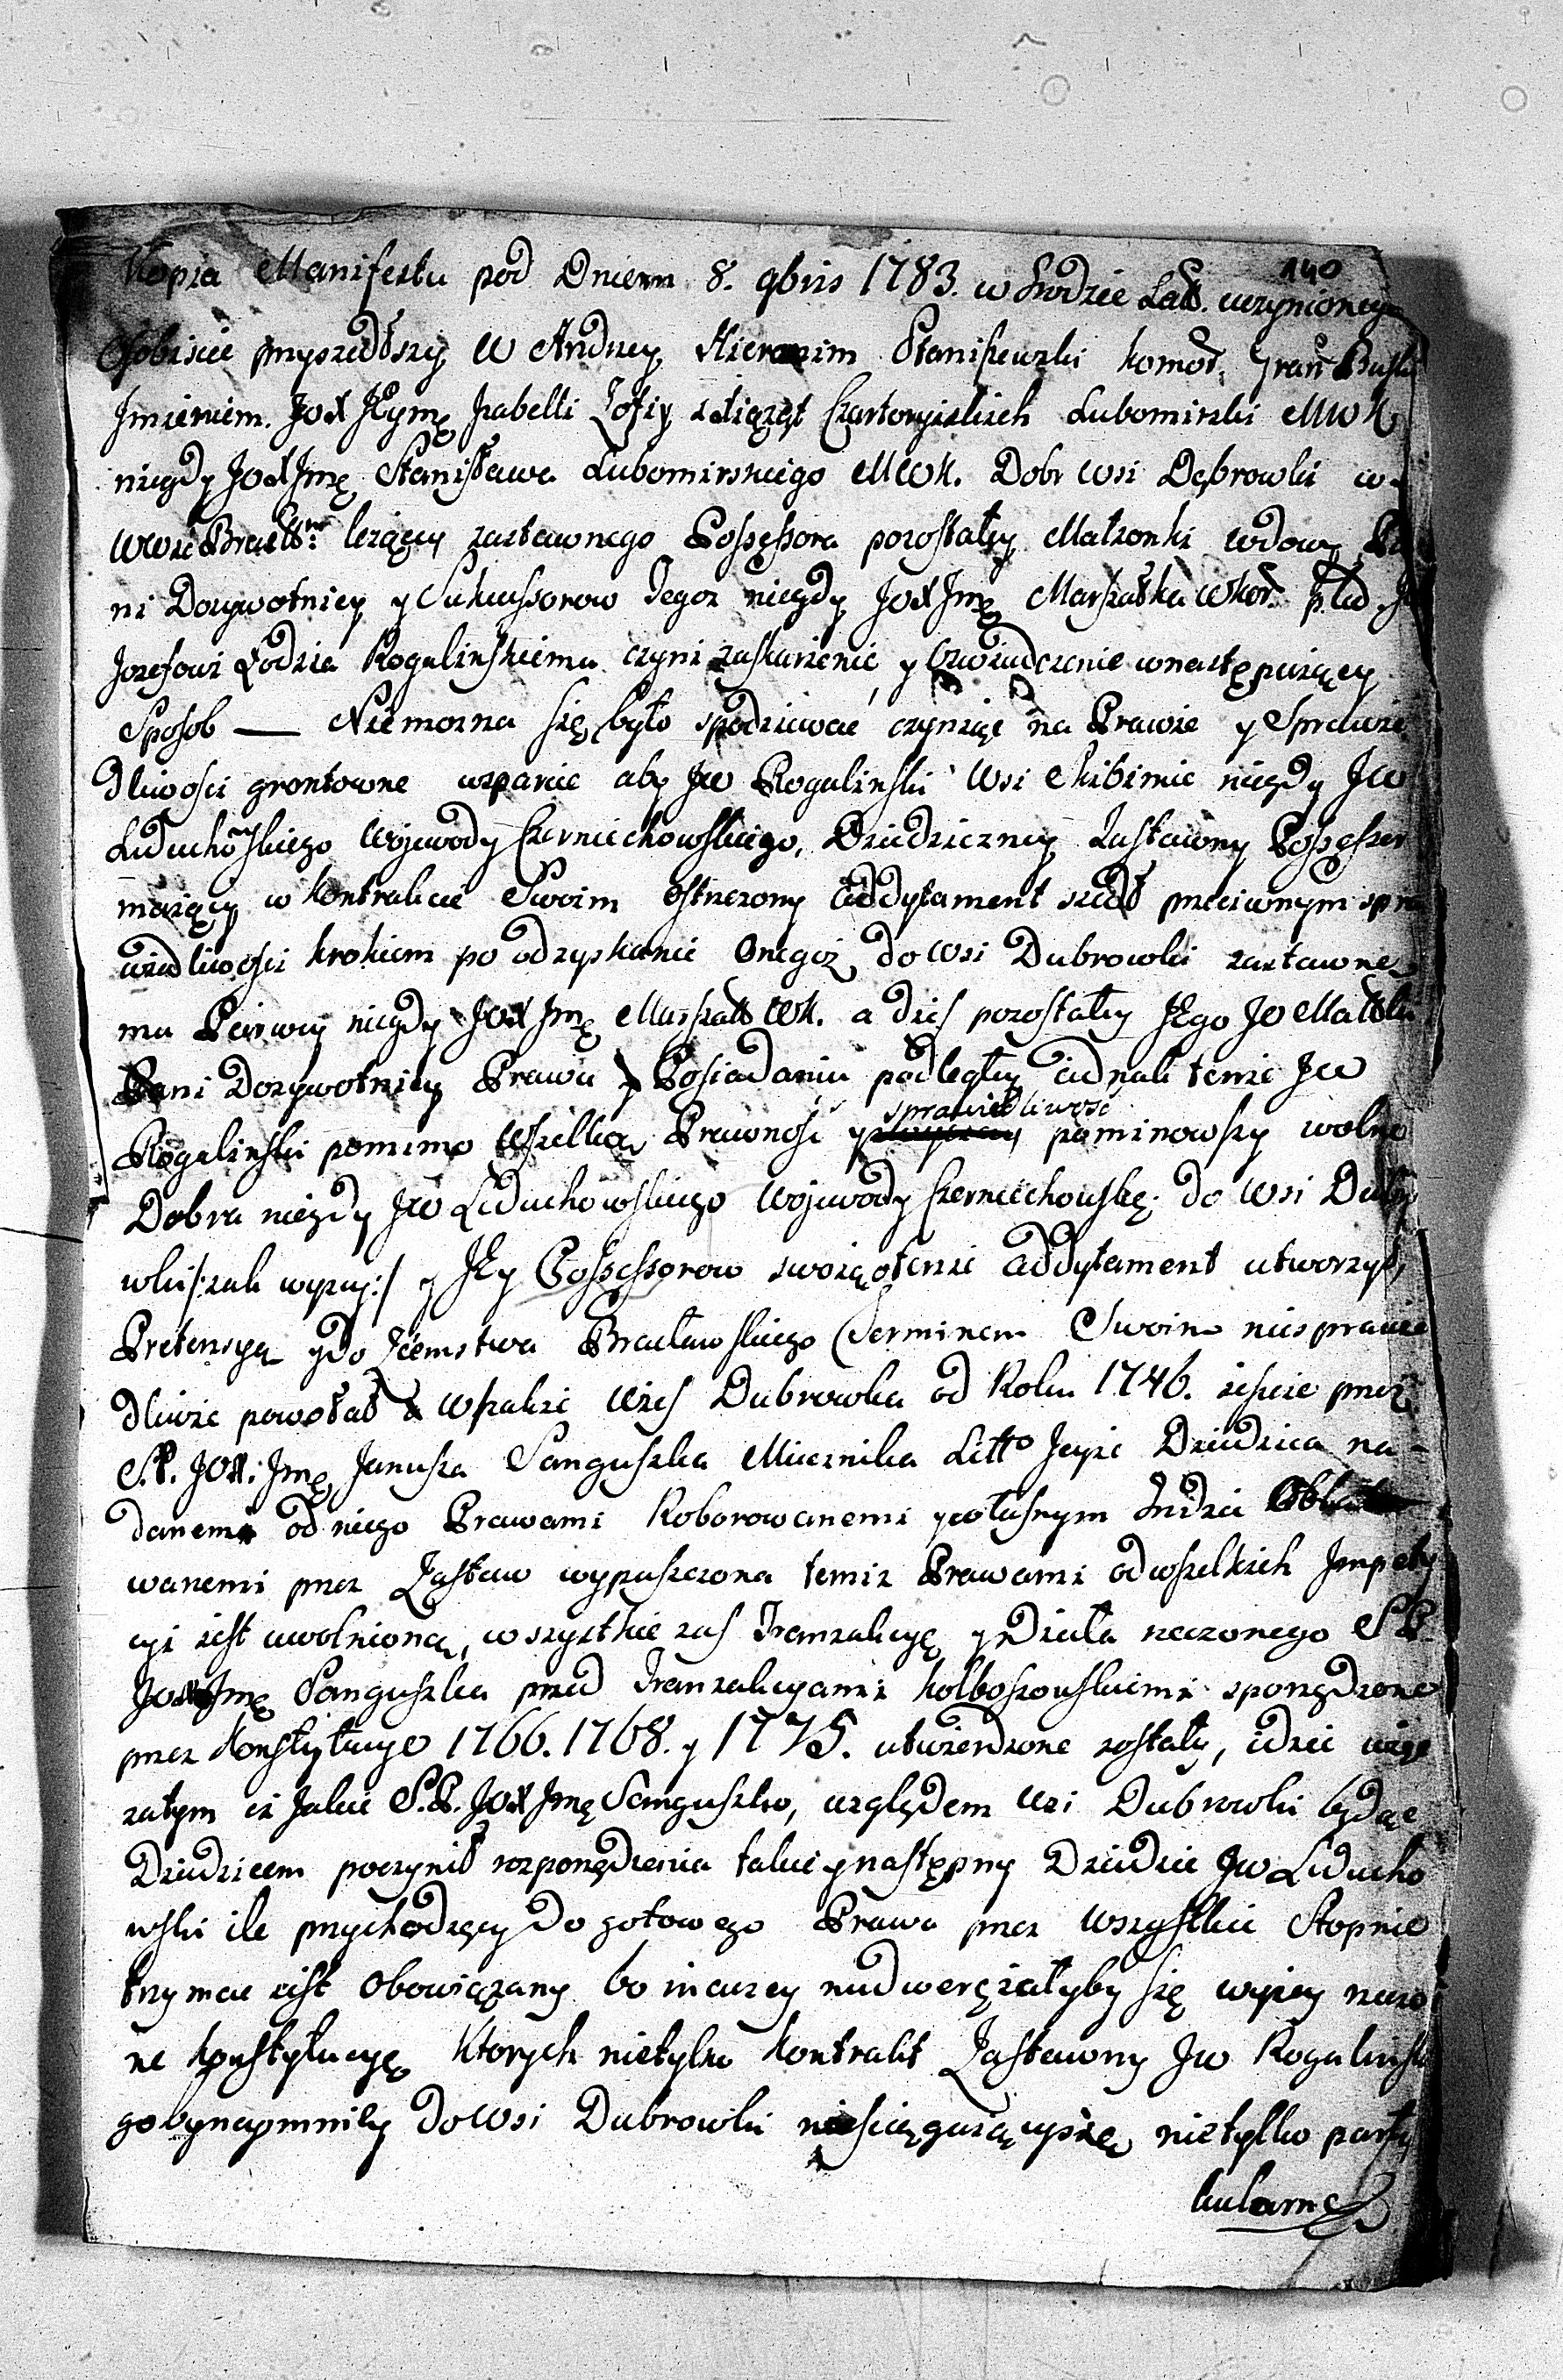 140
Kopia Manifestu pod Dniem 8. 9bris 1783. w Grodzie Łatt. uczynionego
Osobiscie przyszedłszy W Andrzey Hieronim Staniszewski Komor. Gran.
Imieniem JOX JEymę Izabelli Zofiy z Xiążąt Czartoryiskich Lubomirski MWK
niegdy JOX Jmę Stanisława Lubomirskiego MWK. Dobr Wsi Dąbrowki w
Wwdzie leżący zastawnego Possessora pozostałey Małzonki wdowy
ni Dozywotniey y Sukcessorow Tegoz niegdy JOX Jmę Marszałka WKor.
Jozefowi Łodzia Rogalinskiemu czyni zaskarzenie y Oswiadczenie w następuiący
Sposob — Niemozna się było spodziewac czyniąc na Prawie y Sprawie
dliwości grontowne wsparcie aby JW Rogalinski Wsi niegdy JW
Leduchoskiego Wojewody Czerniechowskiego, Dziedziczney Zastawny Possessor
maiący w Kontrakcie Swoim ostrzezony Addytament szedł przeciwnym spra
wiedliwości krokiem po odzyskanie Onegoż do Wsi Dubrowki zastawne
mu Pierwey niegdy JOX Jmę Marszałk WK. a dziś pozostałey JEgo JO Małżki
Pani Dozywotniey Prawu y Posiadaniu podległey iednak tenze JW
Rogalinski pomimo wszelką Prawnosć y sprawiedliwość pominowszy wolne
Dobra niegdy JW Leduchowskiego Wojewody Czerniechowskię. do Wsi Dubro
wki /:iak wyzey:/ y JEy Possessorow swoią otenze Addytament utworzył
Pretensyą y do Ziemstwa Bracławskiego Terminem Swoim niesprawie
dliwie powołał & Wszakze Wieś Dubrowka od Roku 1746. ieszcze przez
S.P. JOX. Jmę Janusza Sanguszka Miecznika Litto Jeyże Dziedzica na-
danemi od niego Prawami Roborowanemi y własnym Grodzie Oblato
wanemi przez Zastaw wypuszczona temiz Prawami od wszelkich Impety
cyi iest uwolniona, wszystkie zaś Tranzakcye y Działa rzeczonego SP.
JOX Jmę Sanguszka przed Tranzakcyami Kolboszowskiemi sporządzone
przez Konstytucye 1766. 1768. y 1775. utwierdzone zostały, idzie więc
zatym iz Jakie S.P. JOX Jmę Sanguszko, względem Wsi Dubrowki będąc
Dziedzicem poczynił rozporządzenia takie y następny Dziedzic JW Leducho
wski ile przychodzący do gotowego Prawa przez wszystkie Stopnie
trzymac iest Obowiązany bo inaczey nadwerężałyby się wyzey rzeczo
ne Konstytucyę Ktorych nietylko Kontrakt Zastawny JW Rogalinskie
go bynaymniey do Wsi Dubrowki niesciągaiący się nietylko party
kularne